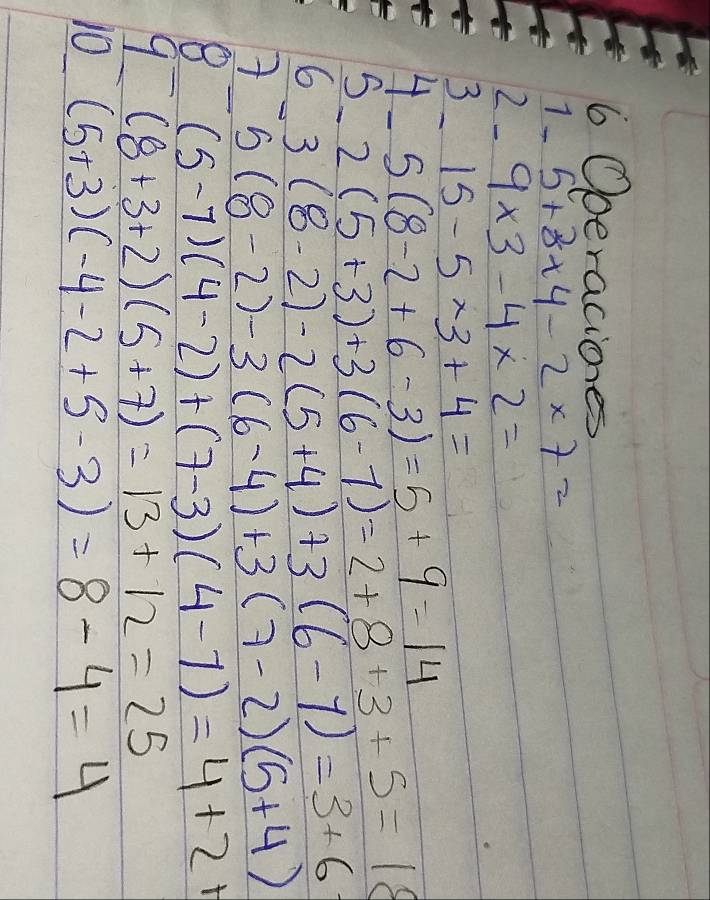 6 Operaciones
1- 5+3×4-2×7=
2- 9×3-4×2=
3- 15-5×3+4=
4- 5(8-2+6-3)=5+9=14
5- 2(5+3)+3(6-1)=2+8+3+5=18
6- 3(8-2)-2(5+4)+3(6-1)=3+6-
7- 5(8-2)-3(6-4)+3(7-2)(5+4)
8- (5-1)(4-2)+(7-3)(4-1)=4+2+
9- (8+3+2)(5+7)=13+12=25
10- (5+3)(-4-2+5-3)=8-4=4